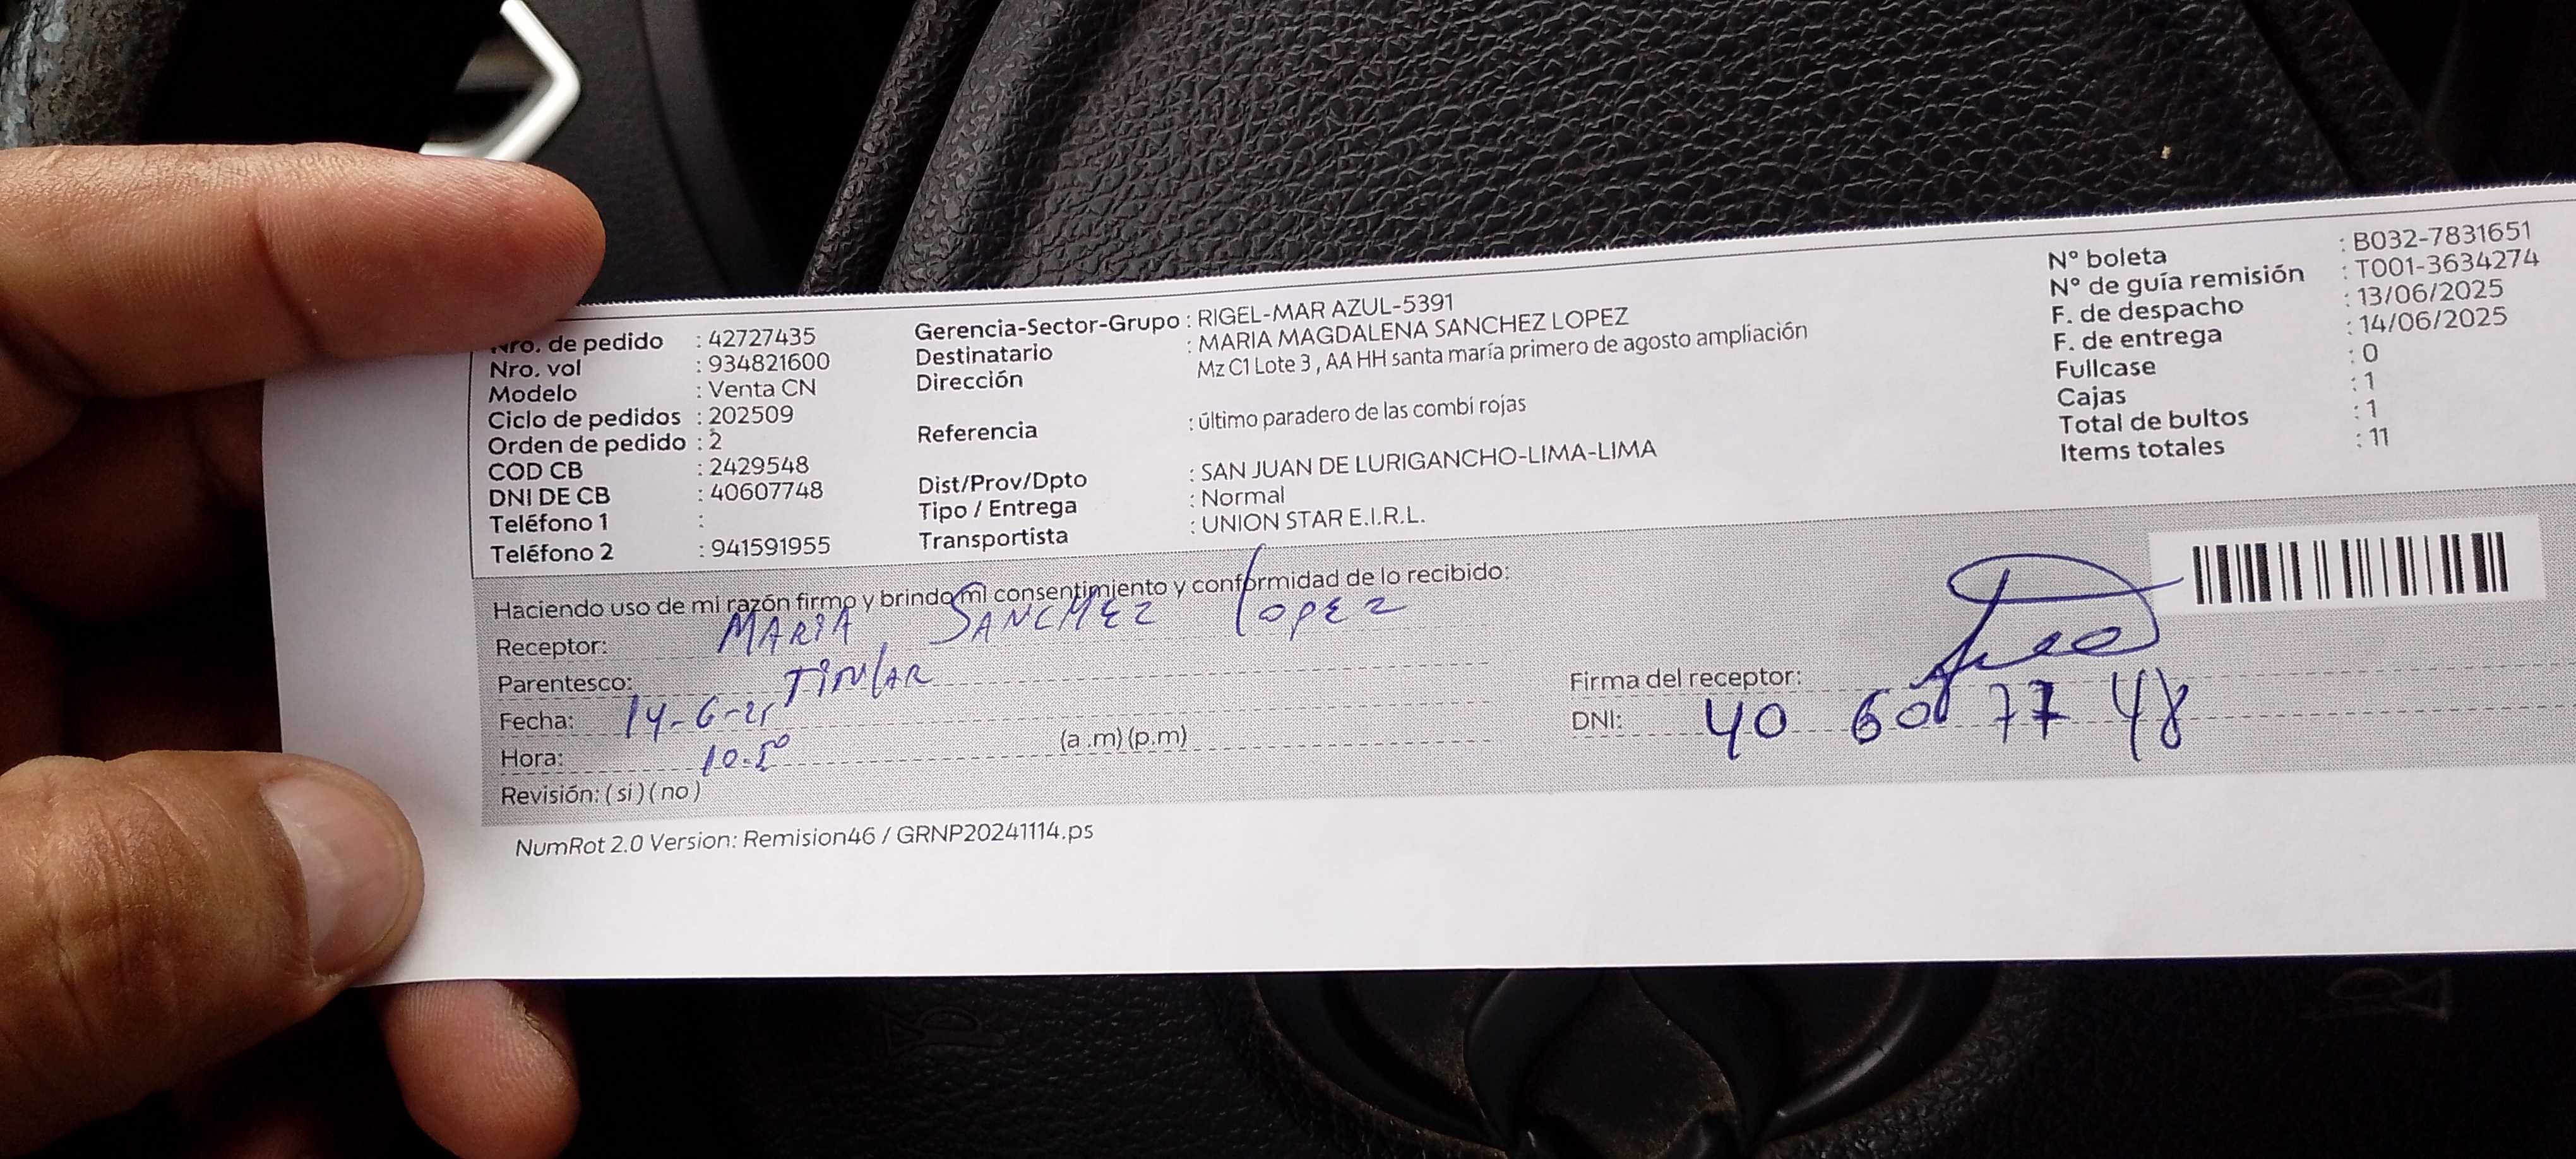 Nro. de pedido : 42727435
Nro. vol : 934821600
Modelo : Venta CN
Ciclo de pedidos : 202509
Orden de pedido : 2
COD CB : 2429548
DNI DE CB : 40607748
Teléfono 1 :
Teléfono 2 : 941591955
Gerencia-Sector-Grupo : RIGEL-MAR AZUL-5391
Destinatario : MARIA MAGDALENA SANCHEZ LOPEZ
Dirección Mz C1 Lote 3 , AA HH santa maría primero de agosto ampliación
Referencia : último paradero de las combi rojas
Dist/Prov/Dpto : SAN JUAN DE LURIGANCHO-LIMA-LIMA
Tipo / Entrega : Normal
Transportista : UNION STAR E.I.R.L.
N° boleta : B032-7831651
N° de guía remisión : T001-3634274
F. de despacho : 13/06/2025
F. de entrega : 14/06/2025
Fullcase : 0
Cajas : 1
Total de bultos : 1
Items totales : 11
Haciendo uso de mi razón firmo y brindo mi consentimiento y conformidad de lo recibido:
Receptor: MARIA SANCHEZ LOPEZ
Parentesco: TITULAR
Fecha: 14-6-25
Hora: 10.50 (a .m) (p.m)
Revisión: ( si ) ( no )
Firma del receptor:
DNI: 40 60 77 48
NumRot 2.0 Version: Remision46 / GRNP20241114.ps